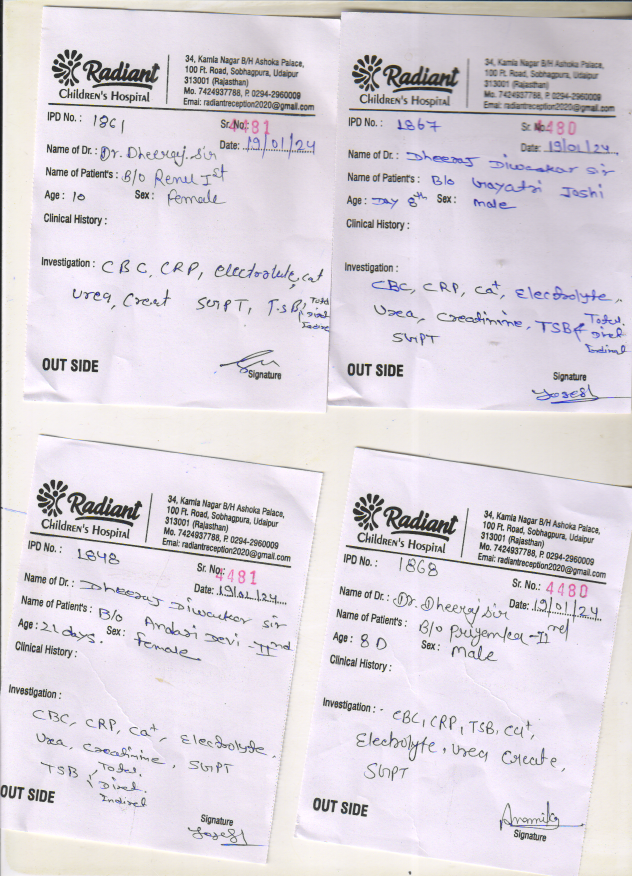 Radiant
Children's Hospital
34, Kamla Nagar B/H Ashoka Palace,
100 Ft. Road, Sobhagpura, Udaipur
313001 (Rajasthan)
Mo. 7424937788, P. 0294-2960009
Emai: radiantreception2020@gmail.com
IPD No. : 1861
Sr. No.: 4481
Date: 19/01/24
Name of Dr. : Dr. Dheeraj Sir
Name of Patient's : B/o Renu Ist
Age : 10 Sex : Female
Clinical History :
Investigation : CBC, CRP, electrolyte, cat
urea, Creat SGPT, T.SB, Total
Direct
Indirect
OUT SIDE
Signature
Radiant
Children's Hospital
34, Kamla Nagar B/H Ashoka Palace,
100 Ft. Road, Sobhagpura, Udaipur
313001 (Rajasthan)
Mo. 7424937788, P. 0294-2960009
Emai: radiantreception2020@gmail.com
IPD No. : 1867
Sr. No.: 4480
Date: 19/01/24
Name of Dr. : Dheeraj Diwakar Sir
Name of Patient's : B/o Gayatri Joshi
Age : Day 8th Sex : Male
Clinical History :
Investigation :
CBC, CRP, Ca+, Electrolyte,
Urea, Creadinine, TSB Total.
Direct
SGPT Indirect
OUT SIDE
Signature
Radiant
Children's Hospital
34, Kamla Nagar B/H Ashoka Palace,
100 Ft. Road, Sobhagpura, Udaipur
313001 (Rajasthan)
Mo. 7424937788, P. 0294-2960009
Emai: radiantreception2020@gmail.com
IPD No. : 1848
Sr. No.: 4481
Date: 19/01/24
Name of Dr. : Dheeraj Diwakar Sir
Name of Patient's : B/o Devi - IInd
Age : 21 days. Sex : Female
Clinical History :
Investigation :
CBC, CRP, Ca+, Electrolyte,
Urea, Creadinine, SGPT
TSB Total.
Direct.
Indirect
OUT SIDE
Signature
Radiant
Children's Hospital
34, Kamla Nagar B/H Ashoka Palace,
100 Ft. Road, Sobhagpura, Udaipur
313001 (Rajasthan)
Mo. 7424937788, P. 0294-2960009
Emai: radiantreception2020@gmail.com
IPD No. : 1868
Sr. No.: 4480
Date: 19/01/24
Name of Dr. : Dr. Dheeraj Sir
Name of Patient's : B/o Priyanka - IInd
Age : 8D Sex : Male
Clinical History :
Investigation : - CBC, CRP, TSB, Ca+,
Electrolyte, Urea Create,
SGPT
OUT SIDE
Anamika
Signature